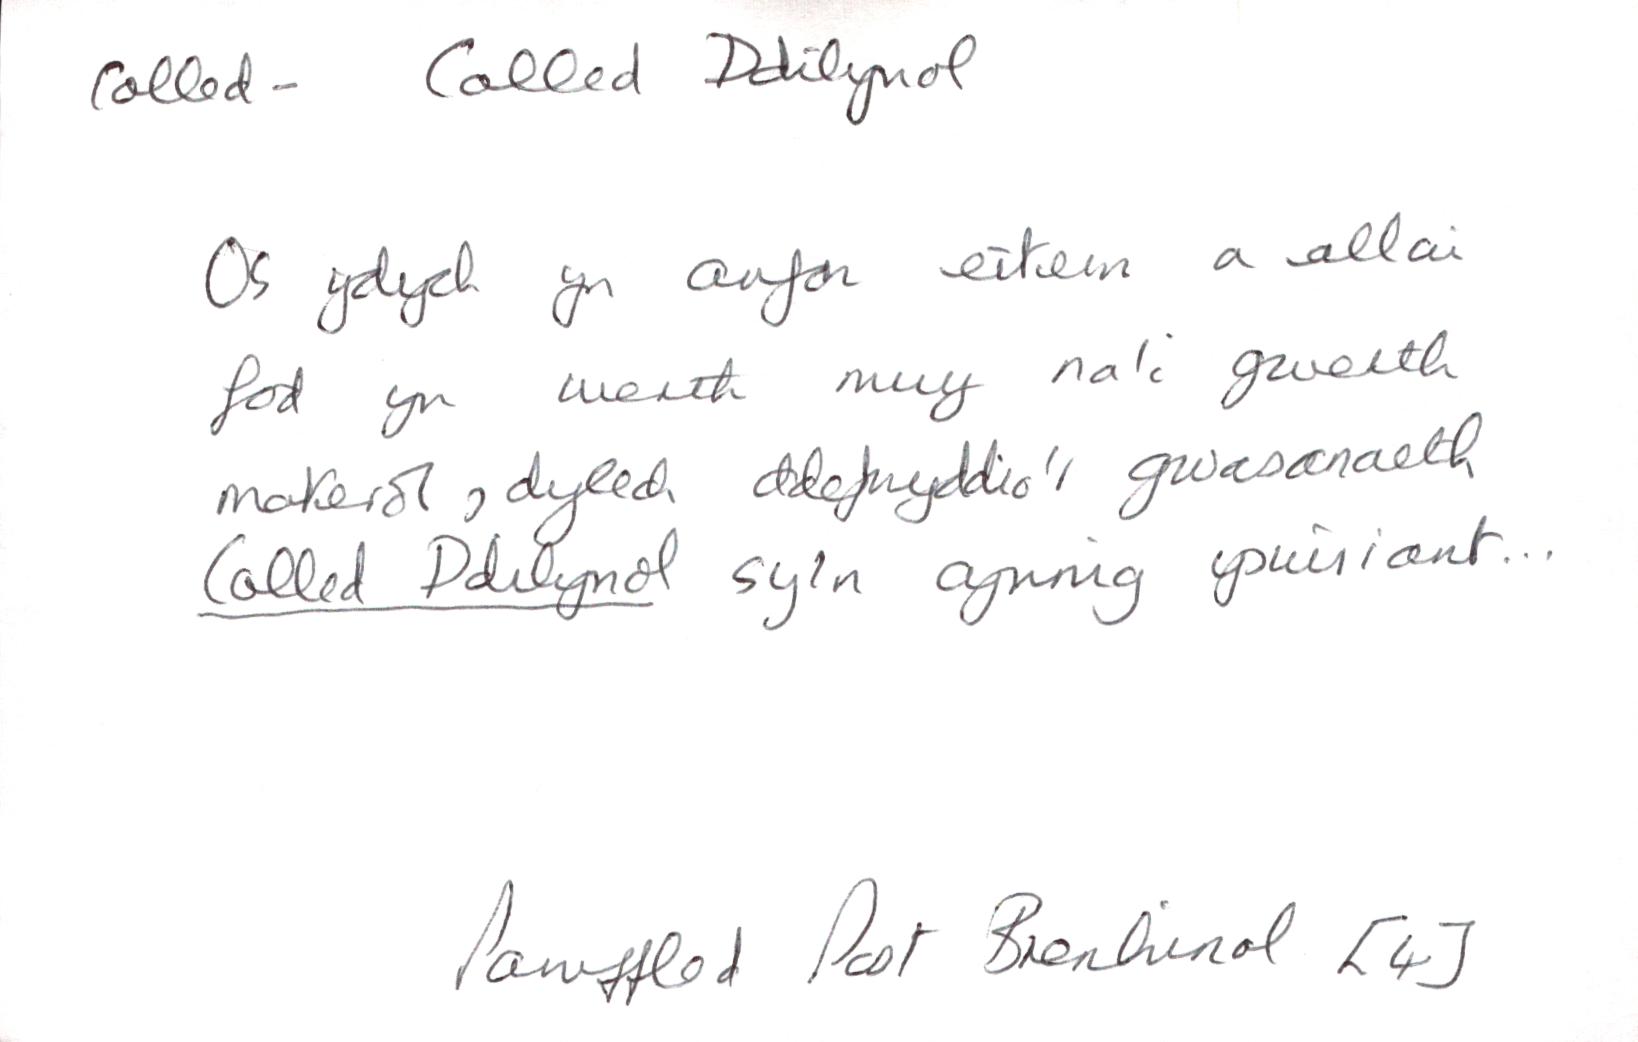 Colled - Colled Ddilynol
Os ydych yn anfon eitem a allai
fod yn werth mwy na'i gwerth
materol, dylech ddefnyddio'r gwasanaeth
Colled Ddilynol sy'n cynnig
Pamffled Post Brenhinol [4]